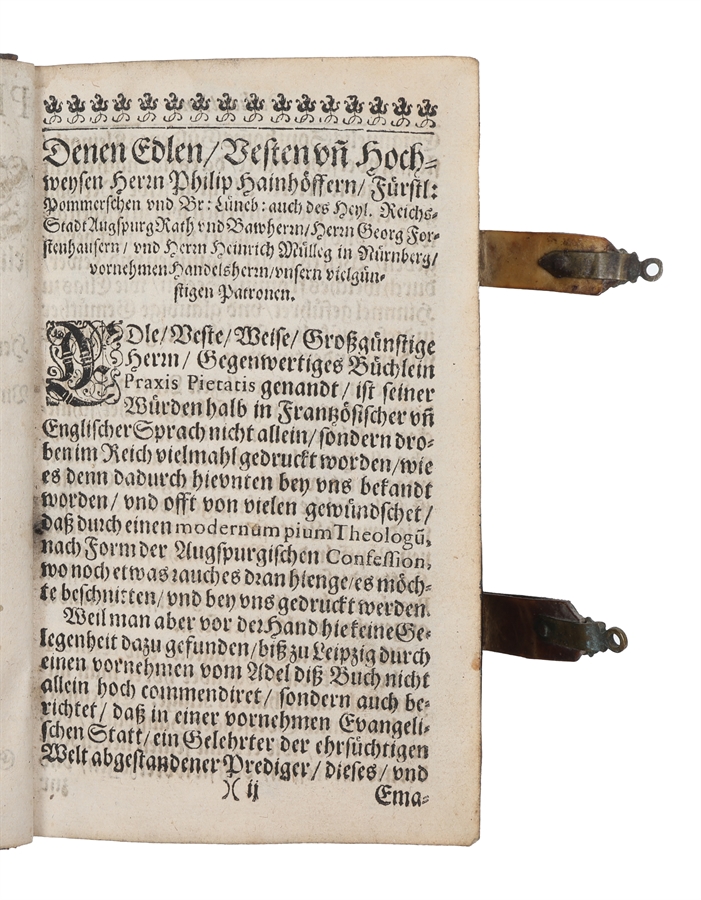 Denen Edlen/Vesten vñ Hoch-
weysen Herrn Philip Hainhöffern/Fürstl:
Pommerschen vnd Br: Lüneb: auch des Heyl. Reichs-
Stadt Augspurg Rath vnd Bawherrn/Herrn Georg For-
stenhausern/vnd Herrn Heinrich Mülleg in Nürnberg/
vornehmen Handelsherrn/vnsern vielgün-
stigen Patronen.
EDle/Veste/Weise/Großgünstige
Herrn/Gegenwertiges Büchlein
Praxis Pietatis genandt/ist seiner
Würden halb in Frantzösischer vñ
Englischer Sprach nicht allein/sondern dro-
ben im Reich vielmahl gedruckt worden/wie
es denn dadurch hievnten bey vns bekandt
worden/vnd offt von vielen gewündschet/
daß durch einen modernum pium Theologũ,
nach Form der Augspurgischen Confession,
wo noch etwas rauches dran hienge/es möch-
te beschnitten/vnd bey vns gedruckt werden.
Weil man aber vor der Hand hie keine Ge-
legenheit dazu gefunden/biß zu Leipzig durch
einen vornehmen vom Adel diß Buch nicht
allein hoch commendiret/sondern auch be-
richtet/daß in einer vornehmen Evangeli-
schen Statt/ein Gelehrter der ehrsüchtigen
Welt abgestandener Prediger/dieses/vnd
)( ij Ema-